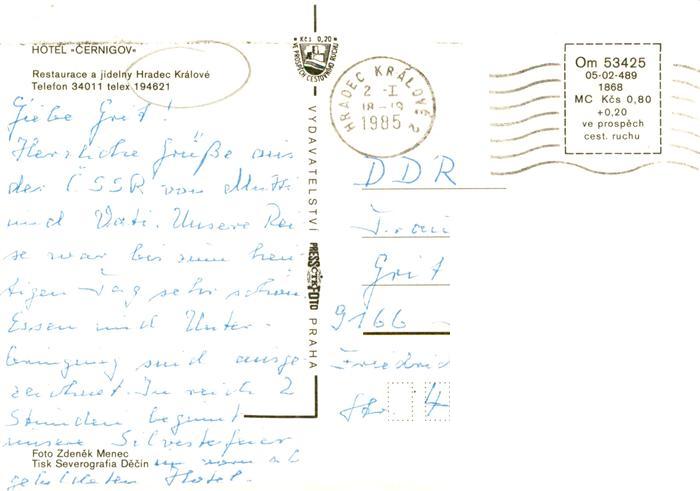 HOTEL »ČERNIGOV«
Restaurace a jídelny Hradec Králové
Telefon 34011 telex 194621
Liebe Grit!
Herzliche Grüße aus
der ČSSR von Mutti
und Vati. Unsere Rei
se war bis zum heu-
tigen Tag sehr schön.
Essen und Unter-
bringung sind ausge-
zeichnet. In reich 2
Stunden beginnt
unsere Silvesterfeier
im
Hotel.
Foto Zdeněk Menec
Tisk Severografia Děčín
Kčs 0,20
VE PROSPĚCH CESTOVNÍHO RUCHU
VYDAVATELSTVÍ PRESSFOTO PRAHA
ČTK
HRADEC KRÁLOVÉ 2
2 -I
18-19
1985
Om 53425
05-02-489
1868
MC Kčs 0,80
+0,20
ve prospěch
cest. ruchu
DDR
Frau
Grit
9166
Friedrich
Str. 4